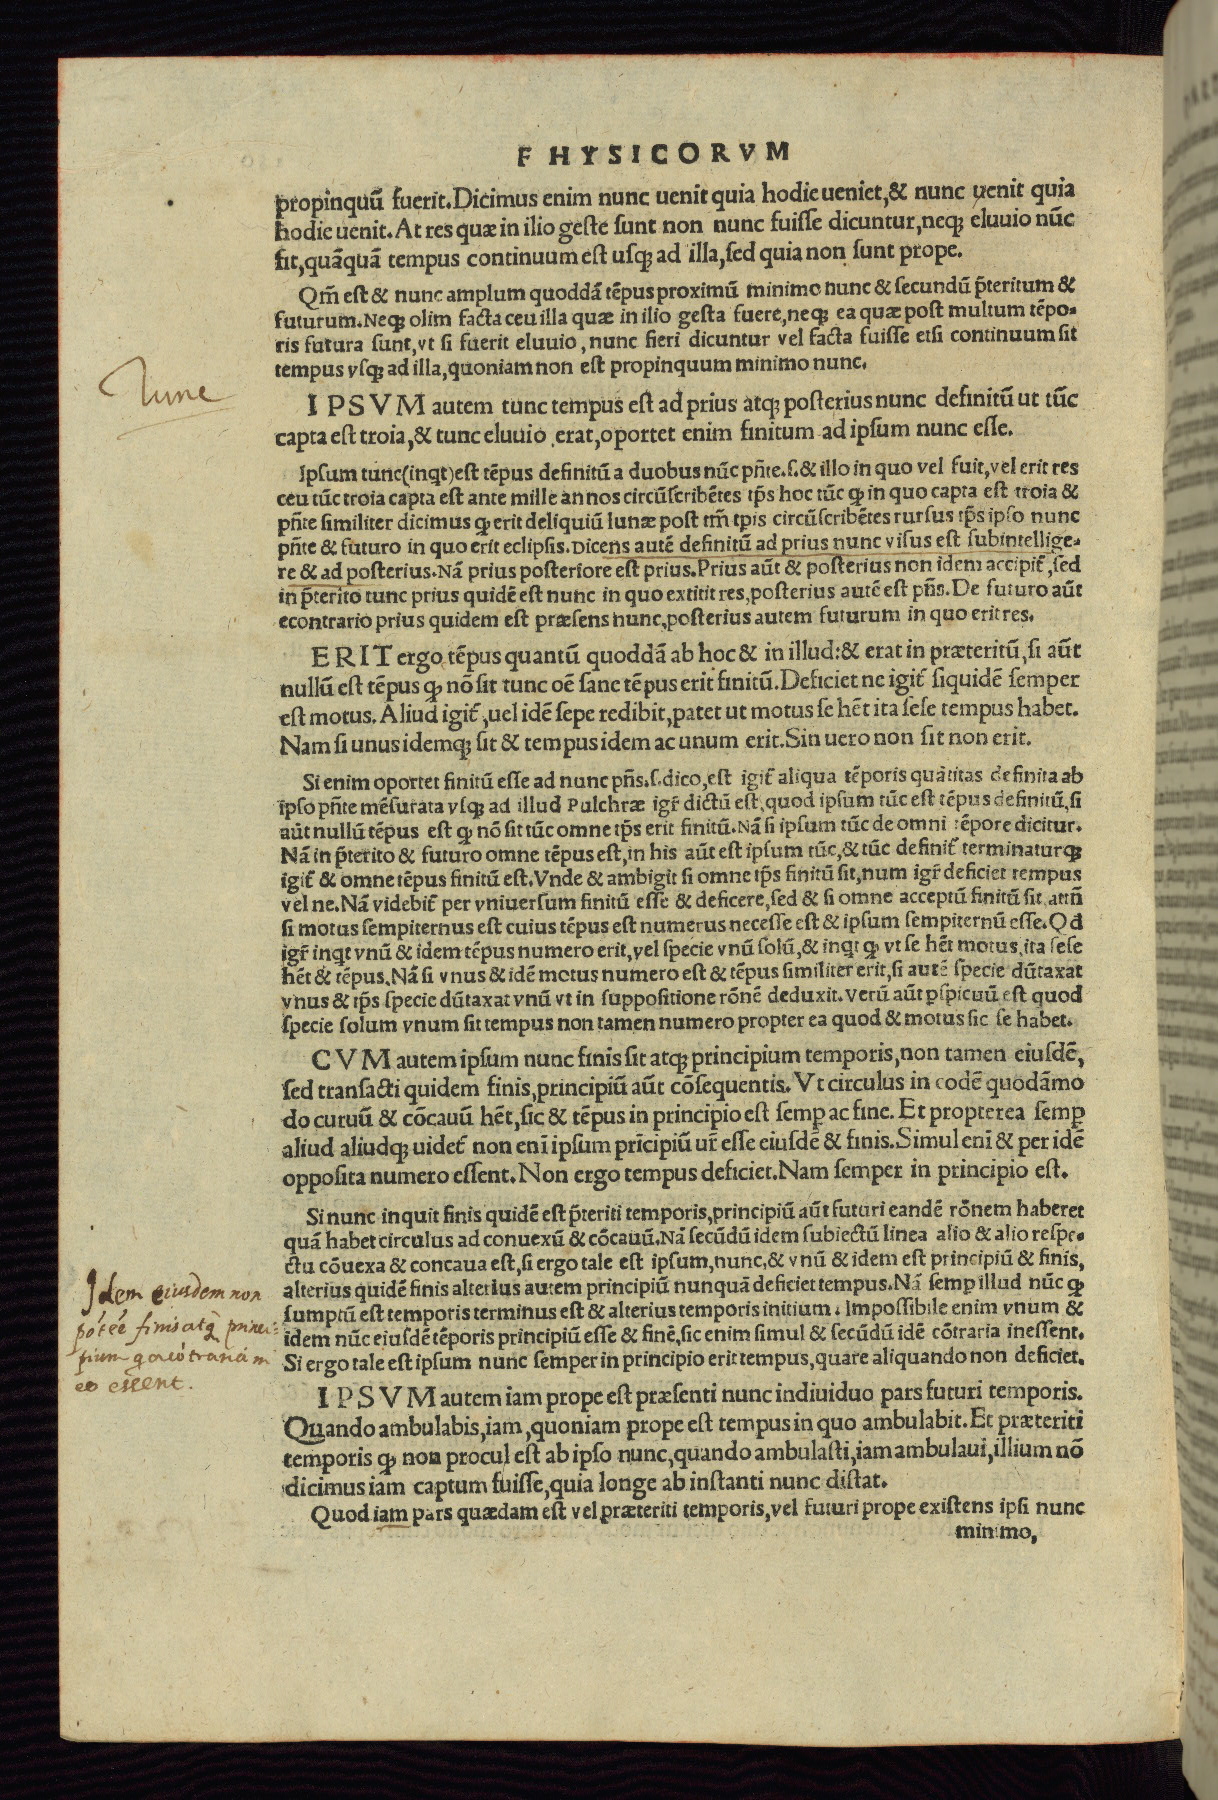 F HYSICORVM
propinquū fuerit.Dicimus enim nunc uenit quia hodie ueniet,& nunc uenit quia
hodie uenit.At res quæ in ilio geste sunt non nunc fuisse dicuntur,neqꝫ eluuio nūc
fit,quāquā tempus continuum est usqꝫ ad illa,sed quia non sunt prope.
Qm̄ est & nunc amplum quoddā tēpus proximū minimo nunc & secundū p̄teritum &
futurum.Neqꝫ olim facta ceu illa quæ in ilio gesta fuere,neqꝫ ea quæ post multum tēpo-
ris futura sunt,vt si fuerit eluuio,nunc fieri dicuntur vel facta fuisse etsi continuum sit
tempus vsqꝫ ad illa,quoniam non est propinquum minimo nunc.
Tunc
IPSVM autem tunc tempus est ad prius atqꝫ posterius nunc definitū ut tūc
capta est troia,& tunc eluuio erat,oportet enim finitum ad ipsum nunc esse.
Ipsum tunc(inqt)est tēpus definitū a duobus nūc pn̄te.s.& illo in quo vel fuit,vel erit res
ceu tūc troia capta est ante mille annos circūscribētes tp̄s hoc tūc qꝫ in quo capta est troia &
pn̄te similiter dicimus qꝫ erit deliquiū lunæ post tm̄ tp̄is circūscribētes rursus tp̄s ipso nunc
pn̄te & futuro in quo erit eclipsis.Dicens autē definitū ad prius nunc visus est subintellige-
re & ad posterius.Nā prius posteriore est prius.Prius aūt & posterius non idem accipit̄,sed
in p̄terito tunc prius quidē est nunc in quo extitit res,posterius autē est pn̄s.De futuro aūt
econtrario prius quidem est præsens nunc,posterius autem futurum in quo erit res.
ERIT ergo tēpus quantū quoddā ab hoc & in illud:& erat in præteritū,si aūt
nullū est tēpus qꝫ nō sit tunc oē sane tēpus erit finitū.Deficiet ne igit̄ siquidē semper
est motus.Aliud igit̄,uel idē sepe redibit,patet ut motus se hēt ita sese tempus habet.
Nam si unus idemqꝫ sit & tempus idem ac unum erit.Sin uero non sit non erit.
Si enim oportet finitū esse ad nunc pn̄s.s.dico,est igit̄ aliqua tēporis quātitas definita ab
ipso pn̄te mēsurata vsqꝫ ad illud Pulchræ igr̄ dictū est,quod ipsum tūc est tēpus definitū,si
aūt nullū tēpus est qꝫ nō sit tūc omne tp̄s erit finitū.Nā si ipsum tūc de omni tēpore dicitur.
Nā in p̄terito & futuro omne tēpus est,in his aūt est ipsum tūc,& tūc definit̄ terminaturqꝫ
igit̄ & omne tēpus finitū est.Vnde & ambigit si omne tp̄s finitū sit,num igr̄ deficiet tempus
vel ne.Nā videbit̄ per vniuersum finitū esse & deficere,sed & si omne acceptū finitū sit attn̄
si motus sempiternus est cuius tēpus est numerus necesse est & ipsum sempiternū esse.Qd
igr̄ inqt vnū & idem tēpus numero erit,vel specie vnū solū,& inqt qꝫ vt se hēt motus,ita sese
hēt & tēpus.Nā si vnus & idē motus numero est & tēpus similiter erit,si autē specie dūtaxat
vnus & tp̄s specie dūtaxat vnū vt in suppositione rōnē deduxit.Verū aūt ꝑspicuū est quod
specie solum vnum sit tempus non tamen numero propter ea quod & motus sic se habet.
CVM autem ipsum nunc finis sit atqꝫ principium temporis,non tamen eiusdē,
sed transacti quidem finis,principiū aūt cōsequentis.Vt circulus in codē quodāmo
do curuū & cōcauū hēt,sic & tēpus in principio est semꝑ ac fine.Et propterea semꝑ
aliud aliudqꝫ uidet̄ non enī ipsum prīcipiū ur̄ esse eiusdē & finis.Simul enī & per idē
opposita numero essent.Non ergo tempus deficiet.Nam semper in principio est.
Si nunc inquit finis quidē est p̄teriti temporis,principiū aūt futuri eandē rōnem haberet
quā habet circulus ad conuexū & cōcauū.Nā secūdū idem subiectū linea alio & alio respe-
ctu cōuexa & concaua est,si ergo tale est ipsum,nunc,& vnū & idem est principiū & finis,
alterius quidē finis alterius autem principiū nunquā deficiet tempus.Nā semꝑ illud nūc qꝫ
sumptū est temporis terminus est & alterius temporis initium.Impossibile enim vnum &
idem nūc eiusdē tēporis principiū esse & finē,sic enim simul & secūdū idē cōtraria inessent.
Si ergo tale est ipsum nunc semper in principio erit tempus,quare aliquando non deficiet.
Idem eiusdem non
finis atqꝫ
essent.
IPSVM autem iam prope est præsenti nunc indiuiduo pars futuri temporis.
Quando ambulabis,iam,quoniam prope est tempus in quo ambulabit.Et præteriti
temporis qꝫ non procul est ab ipso nunc,quando ambulasti,iam ambulaui,illium nō
dicimus iam captum fuisse,quia longe ab instanti nunc distat.
Quod iam pars quædam est vel præteriti temporis,vel futuri prope existens ipsi nunc
minimo,